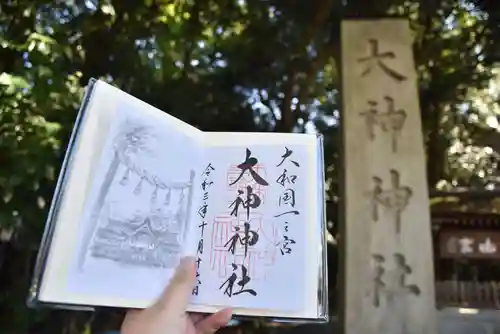 大和国一之宮
大神神社
令和三年十月十六日
大神神社